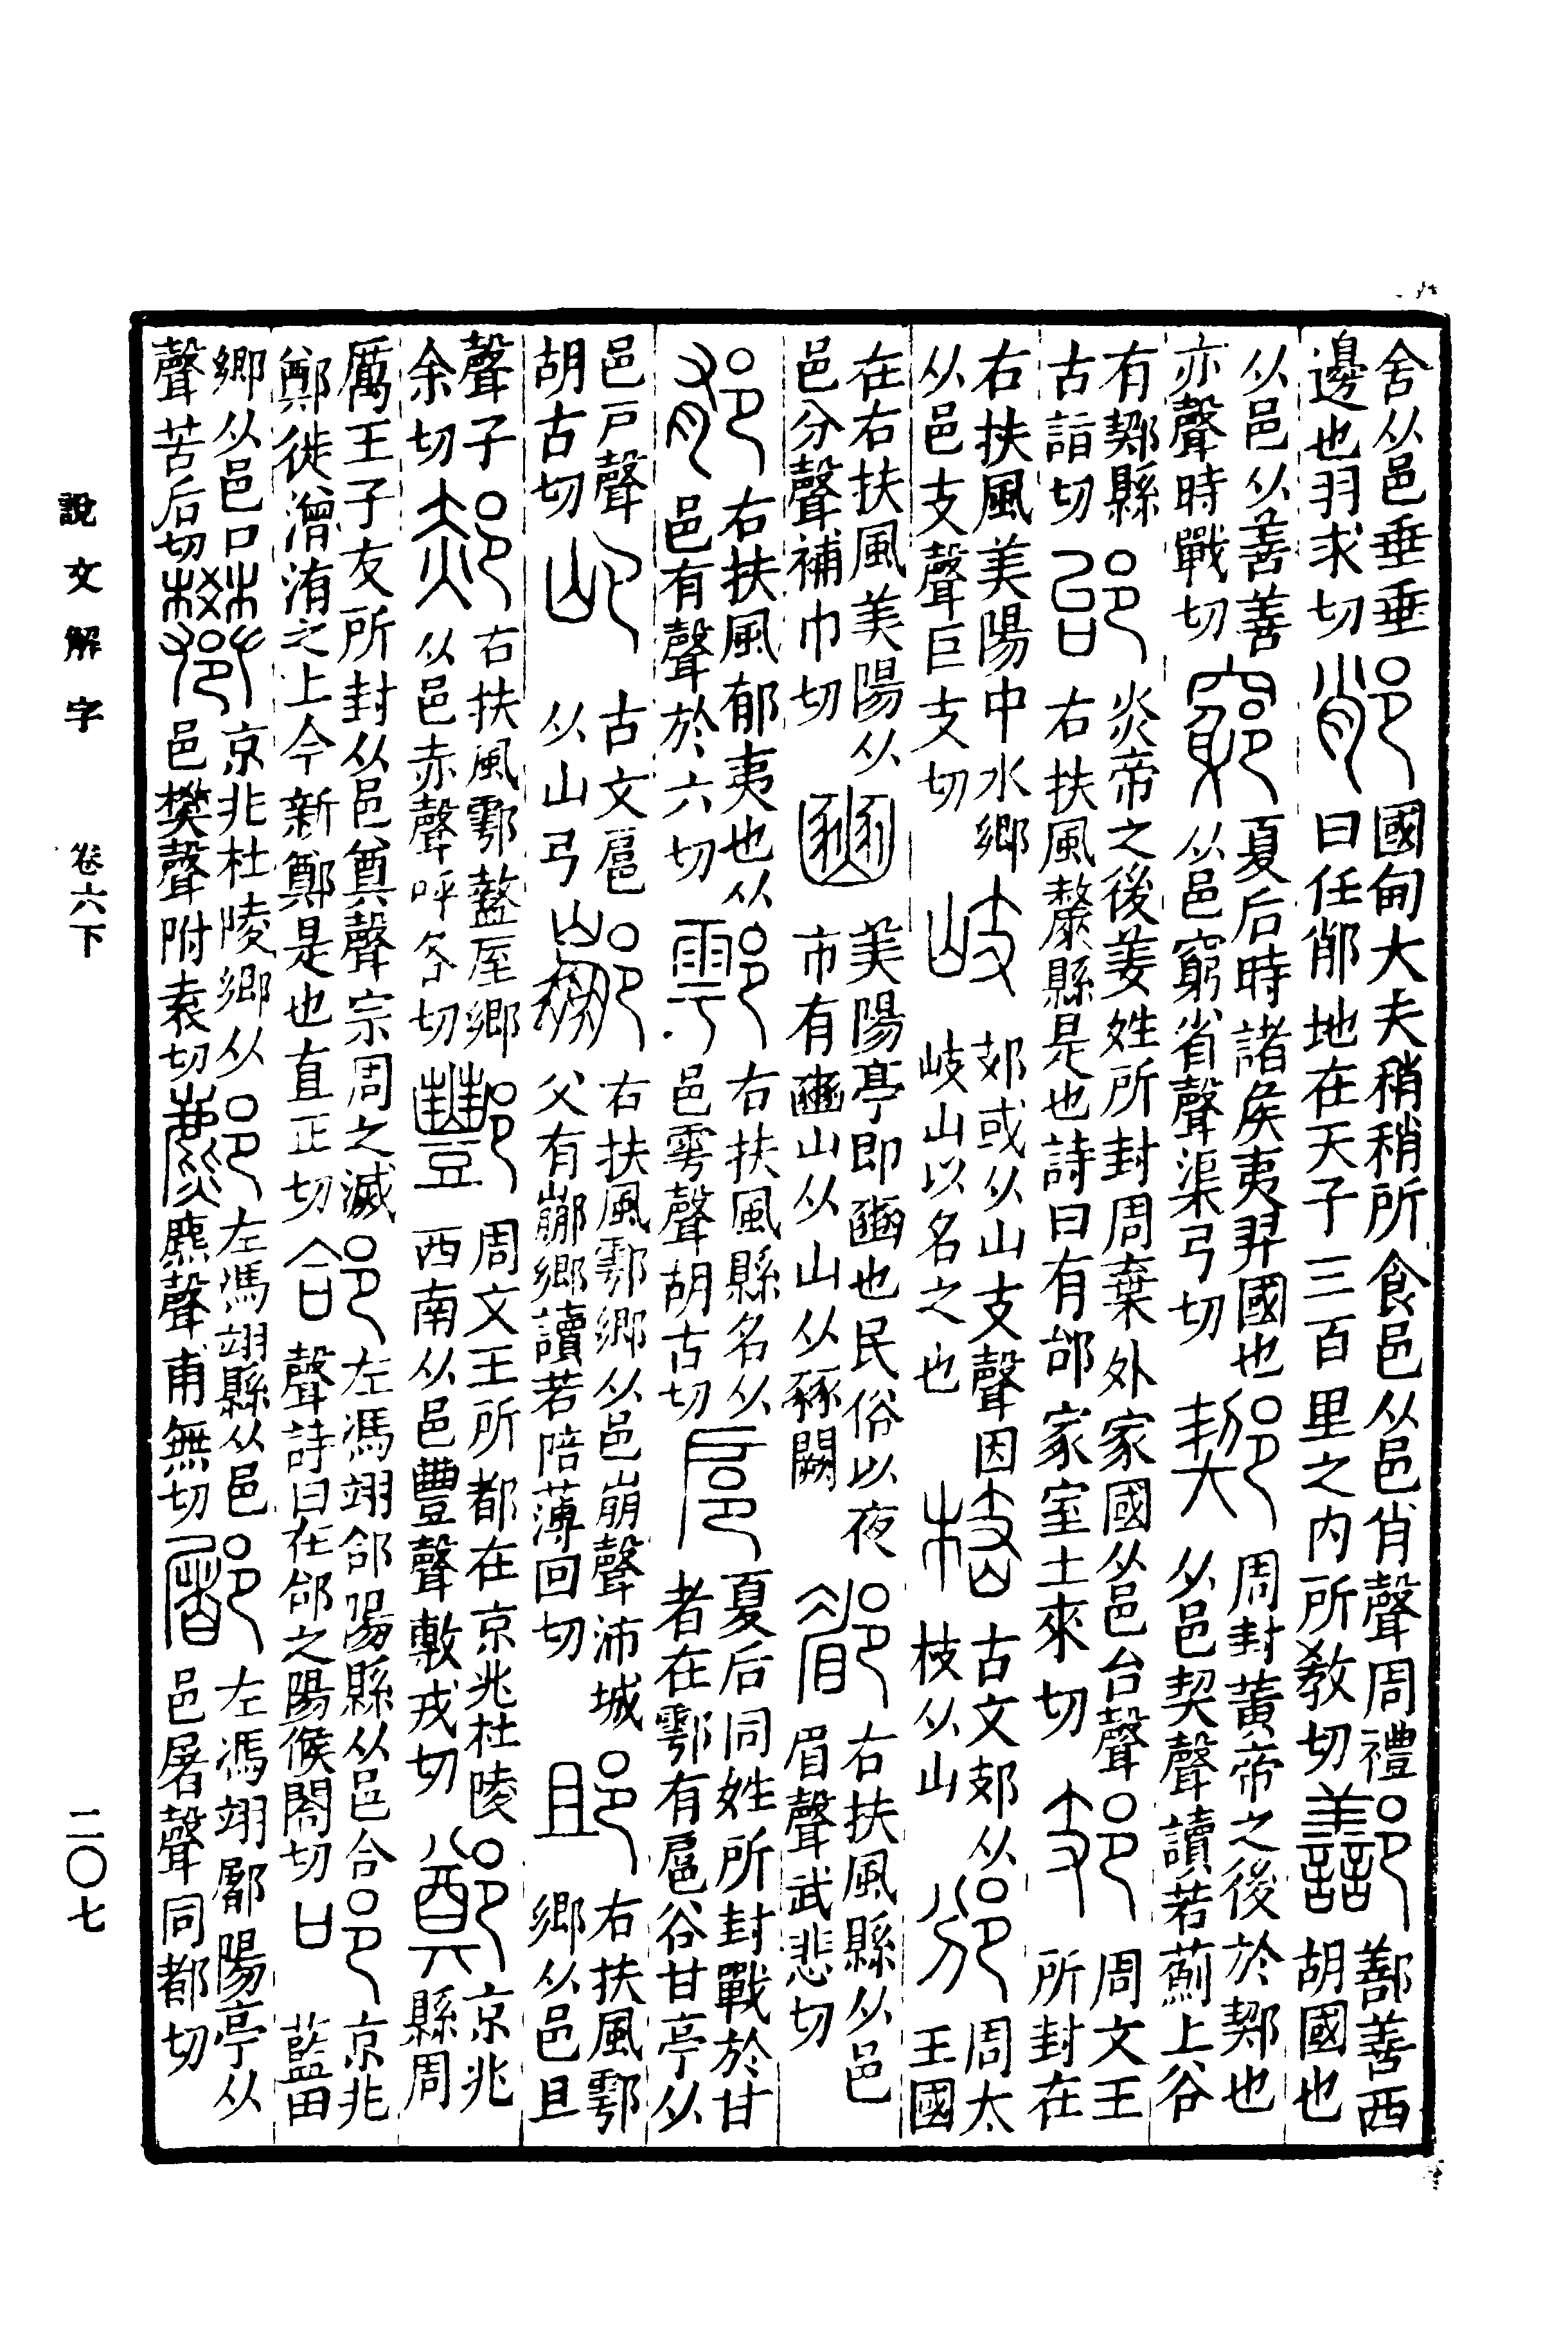 舍从邑垂垂邊也羽求切 𨛍 國甸大夫稍稍所食邑从邑肖聲周禮曰任𨛍地在天子三百里之內所教切 鄯 鄯善西胡國也
从邑从善善亦聲時戰切 竆 夏后時諸矦夷羿國也从邑窮省聲渠弓切 𨝊 周封黃帝之後於𨝊也从邑契聲讀若薊上谷
有𨝊縣古詣切 邰 炎帝之後姜姓所封周棄外家國从邑台聲右扶風斄縣是也詩曰有邰家室土來切 𨙸 周文王所封在
右扶風美陽中水鄉从邑支聲巨支切 岐 𨙸或从山支聲因岐山以名之也 古文𨙸从枝从山 邠 周太王國
在右扶風美陽从邑分聲補巾切 豳 美陽亭即豳也民俗以夜市有豳山从山从豩闕 郿 右扶風縣从邑眉聲武悲切
郁 右扶風郁夷也从邑有聲於六切 鄠 右扶風縣名从邑雩聲胡古切 扈 夏后同姓所封戰於甘者在鄠有扈谷甘亭从
邑戶聲胡古切 古文扈从山弓 䣙 右扶風鄠鄉从邑崩聲沛城父有䣙鄉讀若陪薄回切 䢸 右扶風鄠鄉从邑且
聲子余切 郝 右扶風鄠盩厔鄉从邑赤聲呼各切 酆 周文王所都在京兆杜陵西南从邑豐聲敷戎切 鄭 京兆縣周
厲王子友所封从邑奠聲宗周之滅鄭徙潧洧之上今新鄭是也直正切 郃 左馮翊郃陽縣从邑合聲詩曰在郃之陽候閤切 京兆藍田
鄉从邑口聲苦后切 京兆杜陵鄉从邑樊聲附袁切 鄜 左馮翊縣从邑麃聲甫無切 䣝 左馮翊䣝陽亭从邑屠聲同都切
說文解字　卷六下　二〇七